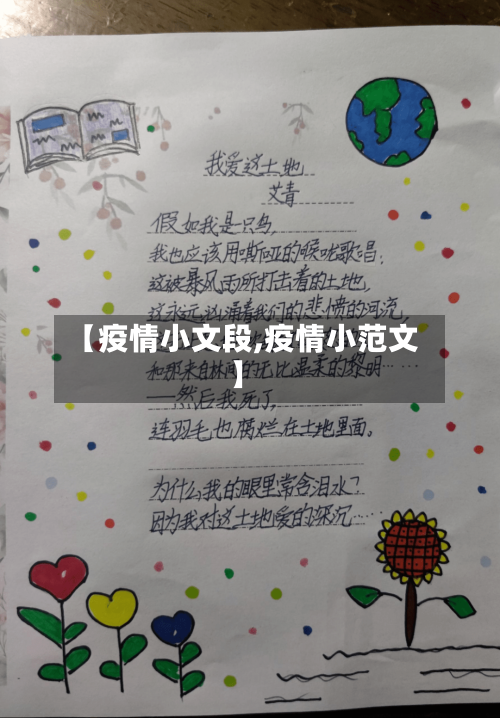 我爱这土地
艾青
假如我是只鸟,
我也应该用嘶哑的喉咙歌唱:
这被暴风雨所打击着的土地,
这永远汹涌着我们的悲愤的河流,
【疫情小文段,疫情小范文
】
和那来自林间的无比温柔的黎明……
——然后我死了,
连羽毛也腐烂在土地里面。
为什么我的眼里常含泪水?
因为我对这土地爱的深沉……